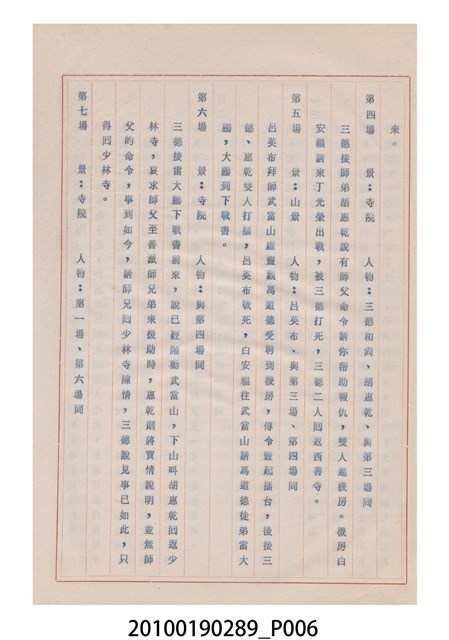 來。
第四場　景：寺院　人物：三德和尚、胡惠乾、與第三場同
三德接師弟胡惠乾說有師父命令請你帮助報仇，雙人進機房。機房白
安福請來丁光榮出戰，被三德打死，三德二人回返西善寺。
第五場　景：山景　人物：呂英布、與第三場、第四場同
呂英布拜師武當山 馮道德受聘到機房，傳令 起擂台，後接三
德、惠乾雙人打擂，呂英布戰死，白安福往武當山請馮道德徒弟雷大
鵬，大鵬到下戰書。
第六場　景：寺院　人物：與第四場同
三德接雷大鵬下戰書前來，說已經 動武當山，下山叫胡惠乾回返少
林寺，哀求師父至善禪師兄弟來援助時，惠乾則將實情說明，並無師
父的命令，事到如今，請師兄回少林寺陳情，三德說見事已如此，只
得回少林寺。
第七場　景：寺院　人物：第一場、第六場同
20100190289_P006